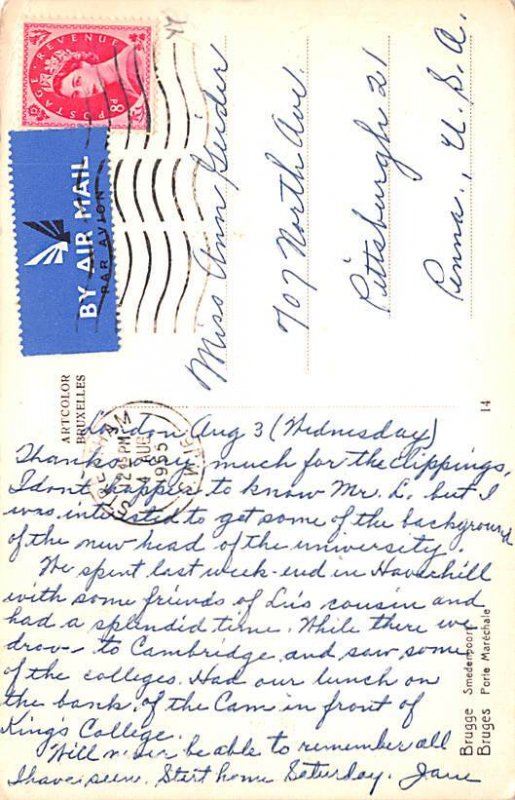 POSTAGE REVENUE
8D
BY AIR MAIL
PAR AVION
Miss Ann Geider
707 North Ave.
Pittsburgh 21
Penna., U.S.A.
ARTCOLOR
BRUXELLES
14
245 PM
4 AUG
1955
S.W.16
London Aug 3 (Wednesday)
Thanks very much for the clippings.
I dont happen to know Mr. L. but I
was interested to get some of the background
of the new head of the university.
We spent last week-end in Haverhill
with some friends of Lis cousin and
had a splendid time. While there we
drove to Cambridge and saw some
of the colleges. Had our lunch on
the bank of the Cam in front of
King's College.
Will never be able to remember all
I have seen. Start home Saturday. Jane
Brugge Smedenpoort
Bruges Porte Maréchale